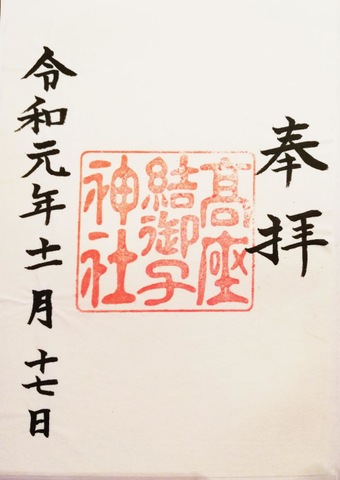 奉拝
髙座
結御子
神社
令和元年十一月十七日